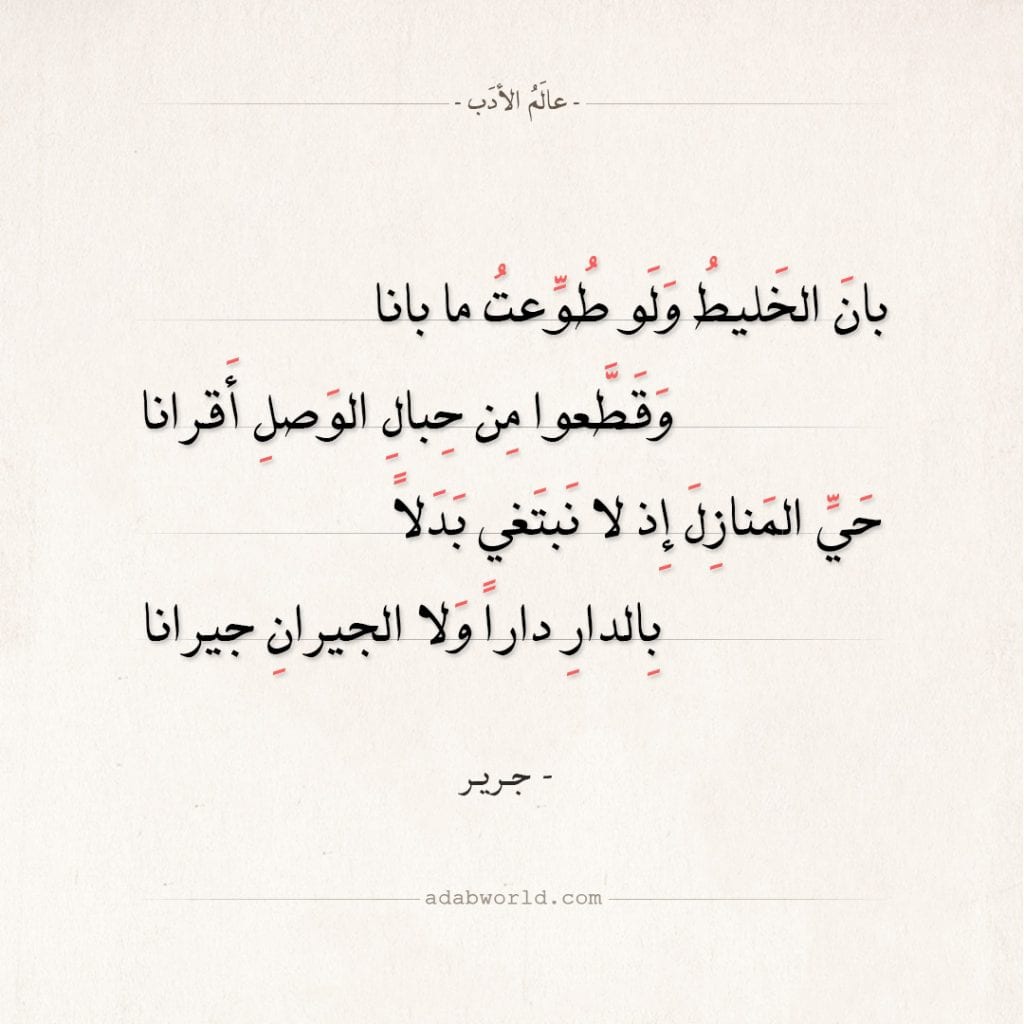 - عالَمُ الأدَب -
بانَ الخَليطُ وَلَو طُوِّعتُ ما بانا
وَقَطَّعوا مِن حِبالِ الوَصلِ أَقرانا
حَيِّ المَنازِلَ إِذ لا نَبتَغي بَدَلاً
بِالدارِ داراً وَلا الجيرانِ جيرانا
- جرير
adabworld.com